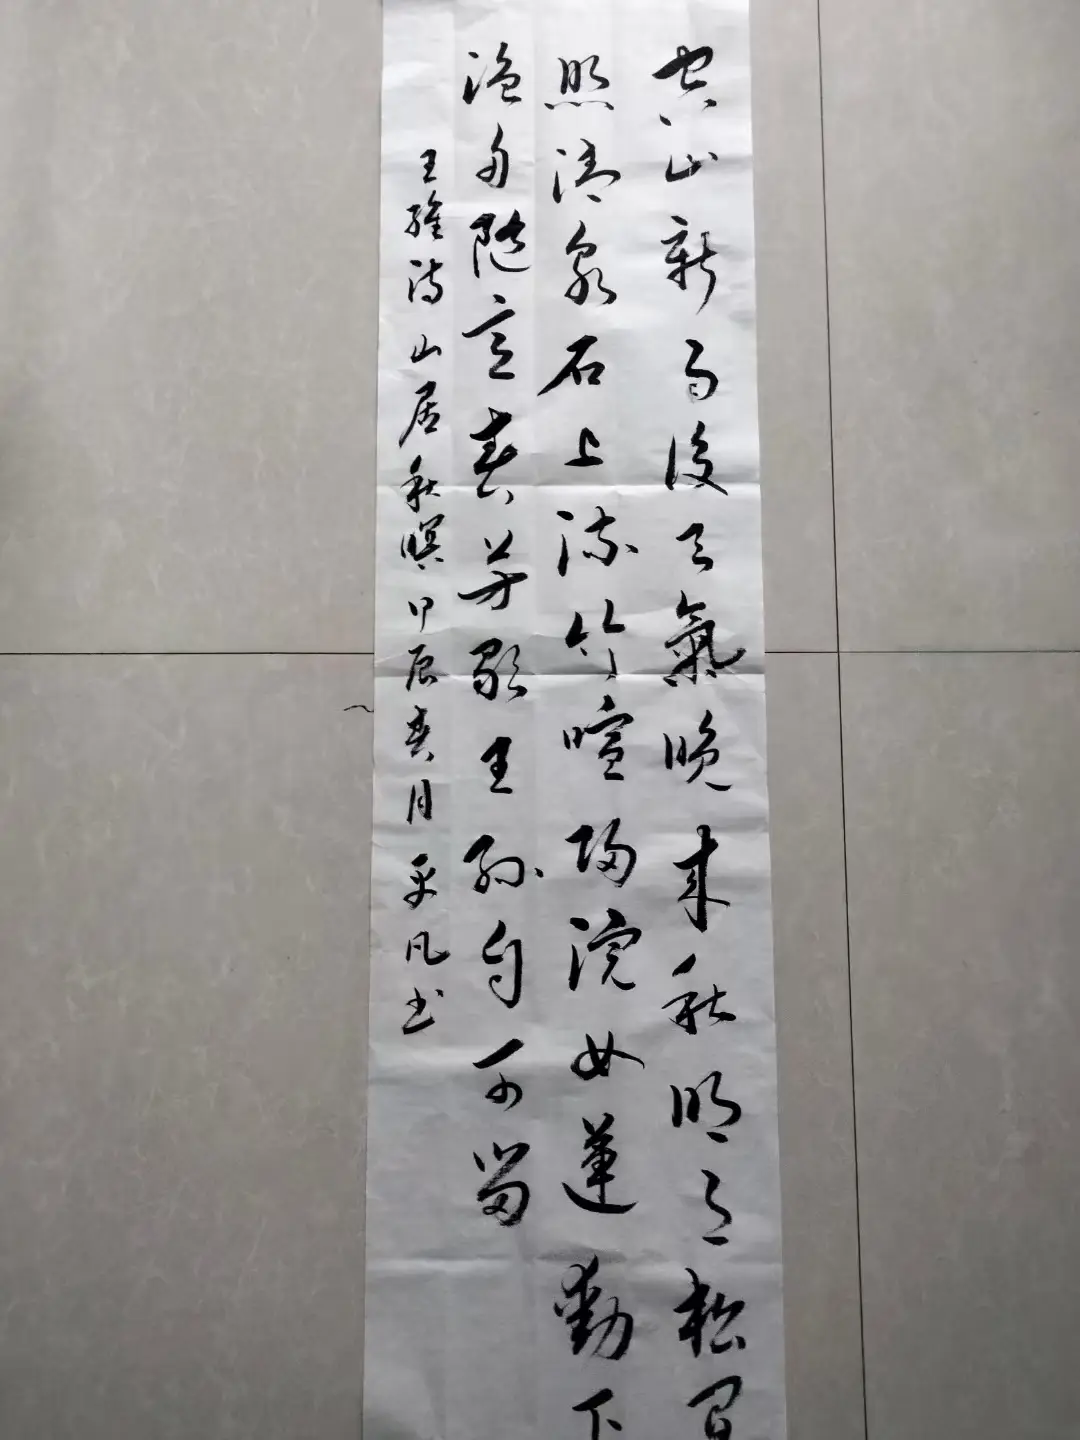 空山新雨後天氣晚来秋明月松間
照清泉石上流竹喧歸浣女蓮動下
漁舟随意春芳歇王孫自可留
王維詩山居秋暝甲辰春月平凡书